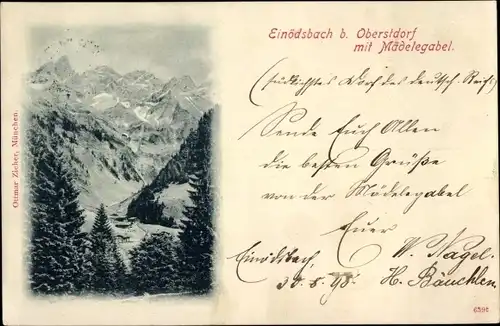 Einödsbach b. Oberstdorf
mit Mädelegabel.
(südlichstes Dorf des deutsch. Reiches)
Sende Euch Allen
die besten Grüße
von der Mädelegabel
Euer W. Nagel.
Einödsbach, H. Bäuchlen.
30.5.98.
Ottmar Zieher, München.